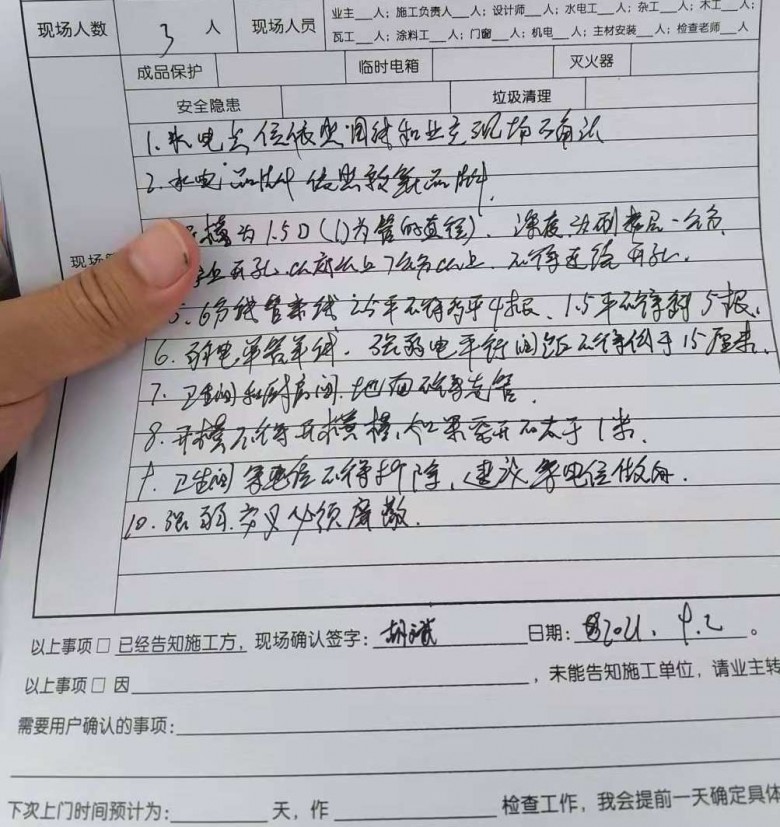 现场人数 3 人 现场人员 业主 人；施工负责人 人；设计师 人；水电工 人；杂工 人；木工 人；
瓦工 人；涂料工 人；门窗 人；机电 人；主材安装 人；检查老师 人
成品保护 临时电箱 灭火器
安全隐患 垃圾清理
1. 水电点位依照图纸和业主现场确认
2. 水电品牌依照 品牌.
槽为1.5D（D为管的直径）. 深度达到 一公分.
开孔. 7公分以上. 不得连续开孔.
现场
5. 6分线管 线 2.5平不得 4根. 1.5平不得 5根.
6. 弱电单管单线. 强弱电平行间距不得低于15厘米.
7. 卫生间和厨房间. 地面不得走管.
8. 开槽不得开横槽. 如果要开不大于1米.
9. 卫生间等电位不得拆除，
10. 强弱. 交叉必须屏蔽.
以上事项 □ 已经告知施工方，现场确认签字： 日期： 2021. 9.2 。
以上事项 □ 因 ，未能告知施工单位，请业主转
需要用户确认的事项：
下次上门时间预计为： 天，作 检查工作，我会提前一天确定具体